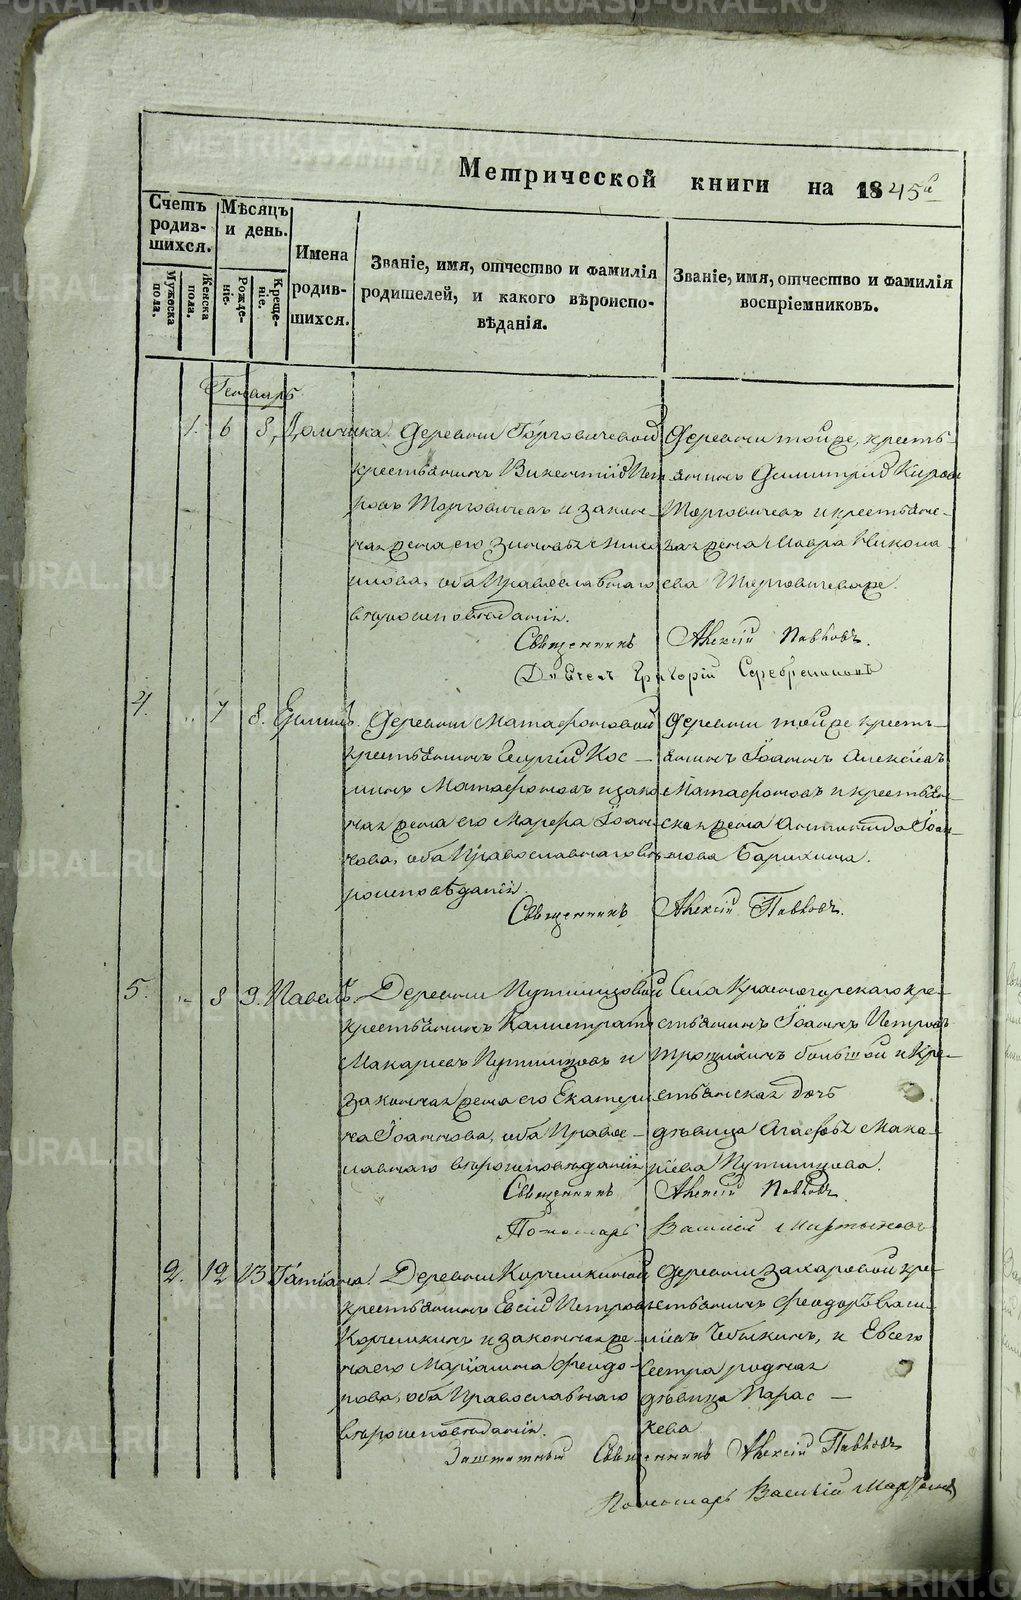 METRIKI.GASO-URAL.RU
Метрической книги на 1845й
Счетъ родив-шихся.
Мужеска пола.
Женска пола.
Мѣсяцъ и день.
Рожде-ніе.
Креще-ніе.
Имена родив-шихся.
Званіе, имя, отчество и фамилія
родителей, и какого вѣроиспо-
вѣданія.
Званіе, имя, отчество и фамилія
воспріемниковъ.
Генварь
1. 6 8. Домника.
Деревни Торговичевой
крестьянинъ Викентій Пет
ровъ Торговичевъ и закон-
ная жена его
оба Православнаго
вѣроисповѣданія.
Деревни тойже, кресть-
янинъ Димитрій Киров
Торговичевъ и крестьянс-
кая жена Мавра Никола
ева Торговичевыхъ.
Священникъ Алексій Павловъ.
Дьячекъ Григорій Серебренниковъ
4. 7 8. Ермилъ.
Деревни Матафоновой
крестьянинъ Георгій Кос-
минъ Матафоновъ и зако
ная жена его Марѳа Іоан
нова, оба Православнаго вѣ
роисповѣданія.
Деревни тойже кресть-
янинъ Іоаннъ Алексіевъ
Матафоновъ и крестьян-
ская жена Антонида Іоан-
нова Барихина.
Священникъ Алексій Павловъ.
5. 8 9. Павелъ.
Деревни Путимцовой
крестьянинъ Калистратъ
Макаріевъ Путимцовъ и
законная жена его Екатери
на Іоаннова, оба Правос-
лавнаго вѣроисповѣданія
Села Красногорскаго кре-
стьянинъ Іоаннъ Петровъ
большой и Кре-
стьянская дочь
дѣвица Агафья Мака-
ріева Путимцова.
Священникъ Алексій Павловъ
Пономарь Василій Мартыновъ
2. 12 13 Татіана.
Деревни Корчемкиной
крестьянинъ Евсій Петров
Корчемкинъ и законная же-
на его Маріамна Феодо-
рова, оба Православнаго
вѣроисповѣданія.
Деревни Захаровой кре-
стьянинъ Феодоръ Васи-
ліевъ Чебыкинъ, и Евсего
сестра родная
дѣвица Парас-
кева
Заштатный Священникъ Алексій Павловъ
Пономарь Василій Мартыновъ